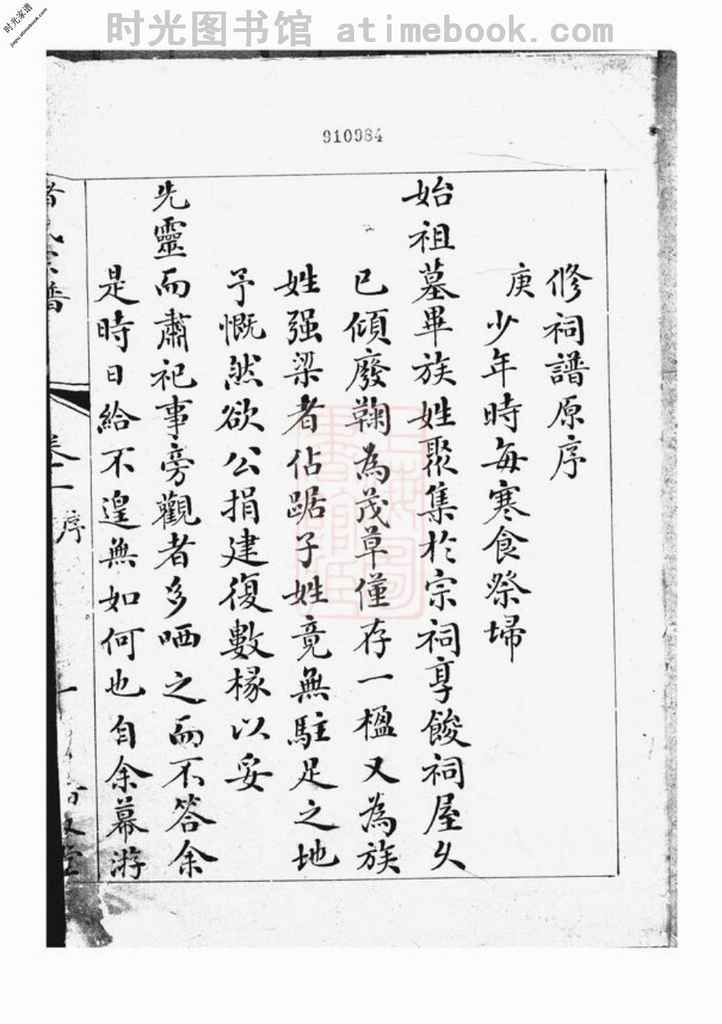 时光图书馆 atimebook.com
时光家谱
jiapu.atimebook.com
910984
修祠譜原序
庚少年時每寒食祭埽
始祖墓畢族姓聚集於宗祠享餕祠屋久
已傾廢鞠為茂草僅存一楹又為族
姓强梁者佔踞子姓竟無駐足之地
予慨然欲公捐建復數椽以妥
先靈而肅祀事旁觀者多哂之而不答余
是時日給不遑無如何也自余幕游
氏宗譜
序
一